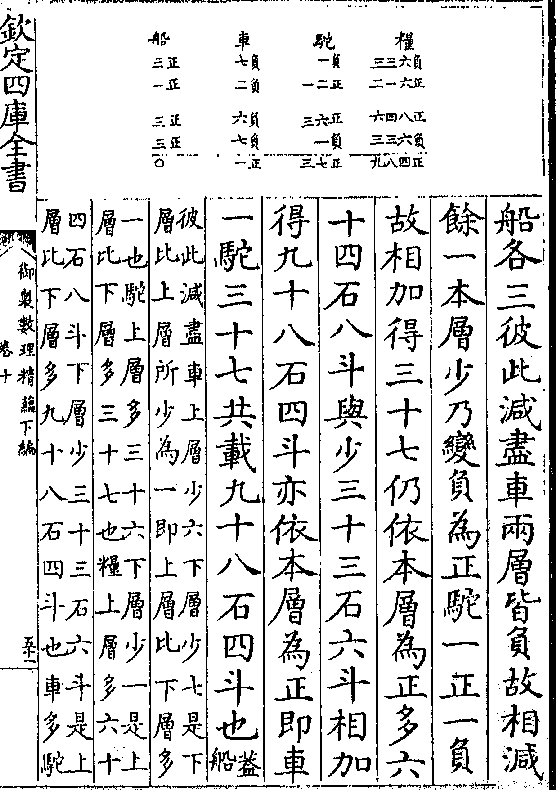 糧 駝 車 船
三三六負 一負 七負 三正
二一六正 一二正 二負 一正
六四八正 三六正 六負 三正
三三六負 一負 七負 三正
九八四正 三七正 一正 〇
船各三彼此減盡車兩層皆負故相減
餘一本層少乃變負為正駝一正一負
故相加得三十七仍依本層為正多六
十四石八斗與少三十三石六斗相加
得九十八石四斗亦依本層為正即車
一駝三十七共載九十八石四斗也蓋船
彼此減盡車上層少六下層少七是下
層比上層所少為一即上層比下層多
一也駝上層多三十六下層少一是上
層比下層多三十七也糧上層多六十
四石八斗下層少三十三石六斗是上
層比下層多九十八石四斗也車多駝
欽定四庫全書
御製數理精蘊下編
卷十
五十一